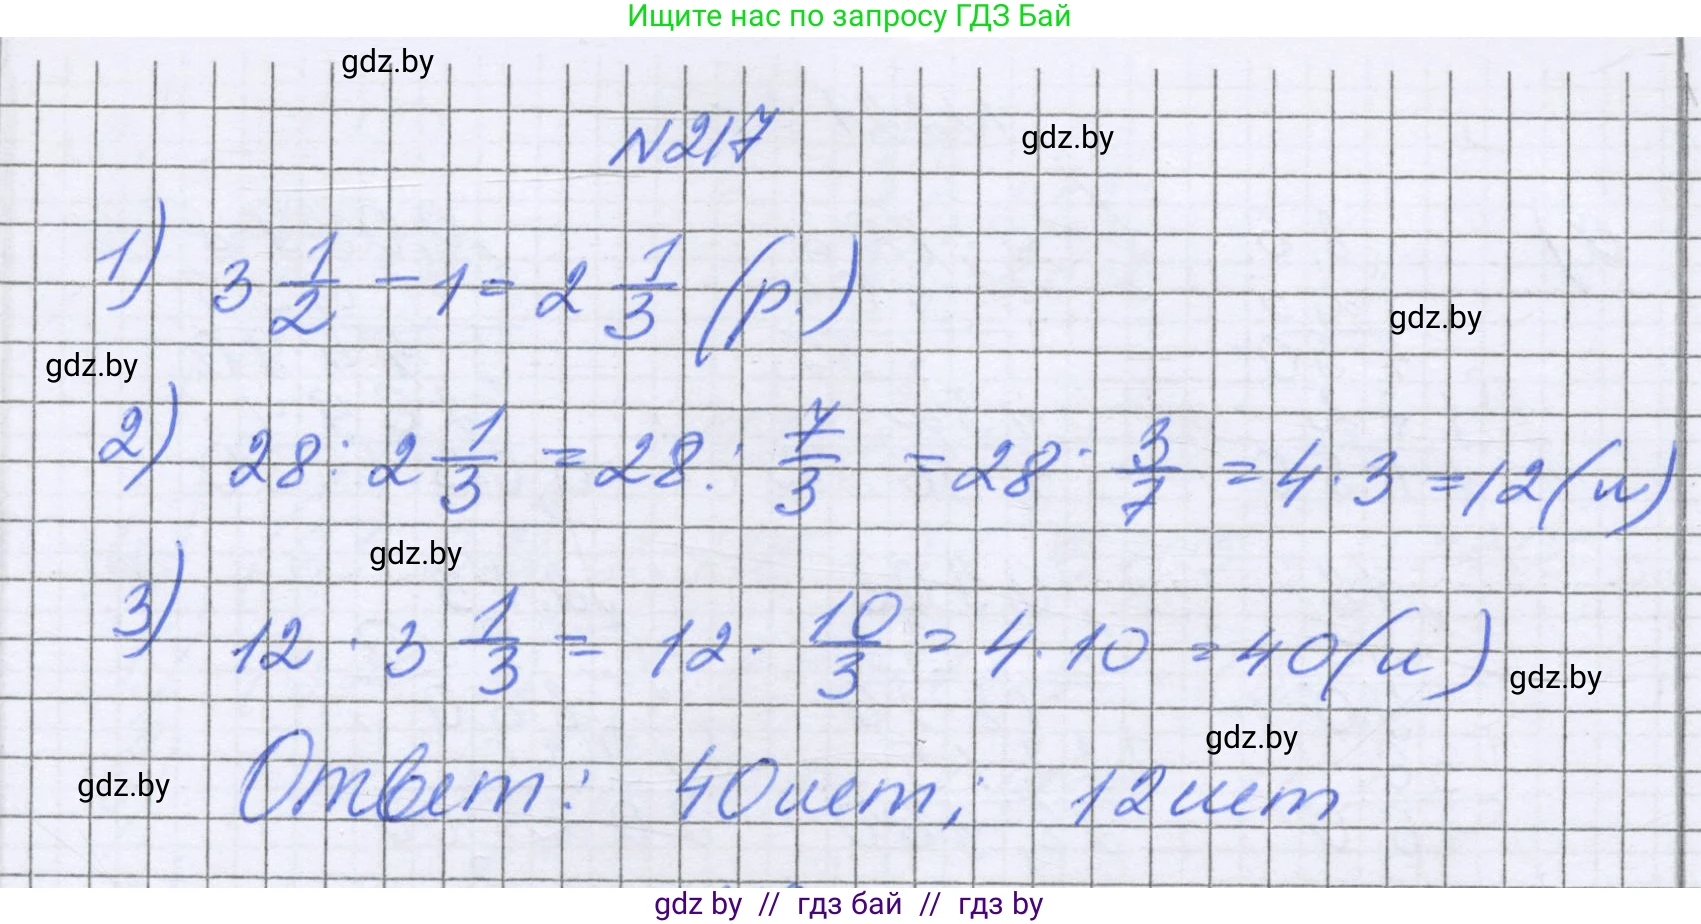 Ищите нас по запросу ГДЗ Бай
gdz.by
N217
gdz.by
1) 3 1/2 - 1 = 2 1/3 (р.)
gdz.by
gdz.by
2) 28 : 2 1/3 = 28 : 7/3 = 28 · 3/7 = 4 · 3 = 12 (л)
gdz.by
3) 12 · 3 1/3 = 12 · 10/3 = 4 · 10 = 40 (л)
gdz.by
gdz.by
gdz.by
Ответ: 40 лет; 12 лет
gdz by // гдз бай // гдз by